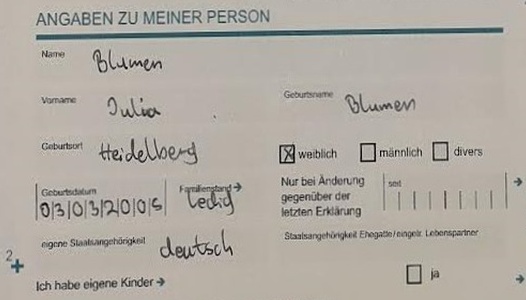 ANGABEN ZU MEINER PERSON
Name Blumen
Vorname Julia Geburtsname Blumen
Geburtsort Heidelberg ☒ weiblich ☐ männlich ☐ divers
Geburtsdatum 03032005 Familienstand → ledig Nur bei Änderung gegenüber der letzten Erklärung seit →
eigene Staatsangehörigkeit deutsch Staatsangehörigkeit Ehegatte/eingetr. Lebenspartner
2
Ich habe eigene Kinder → ☐ ja →